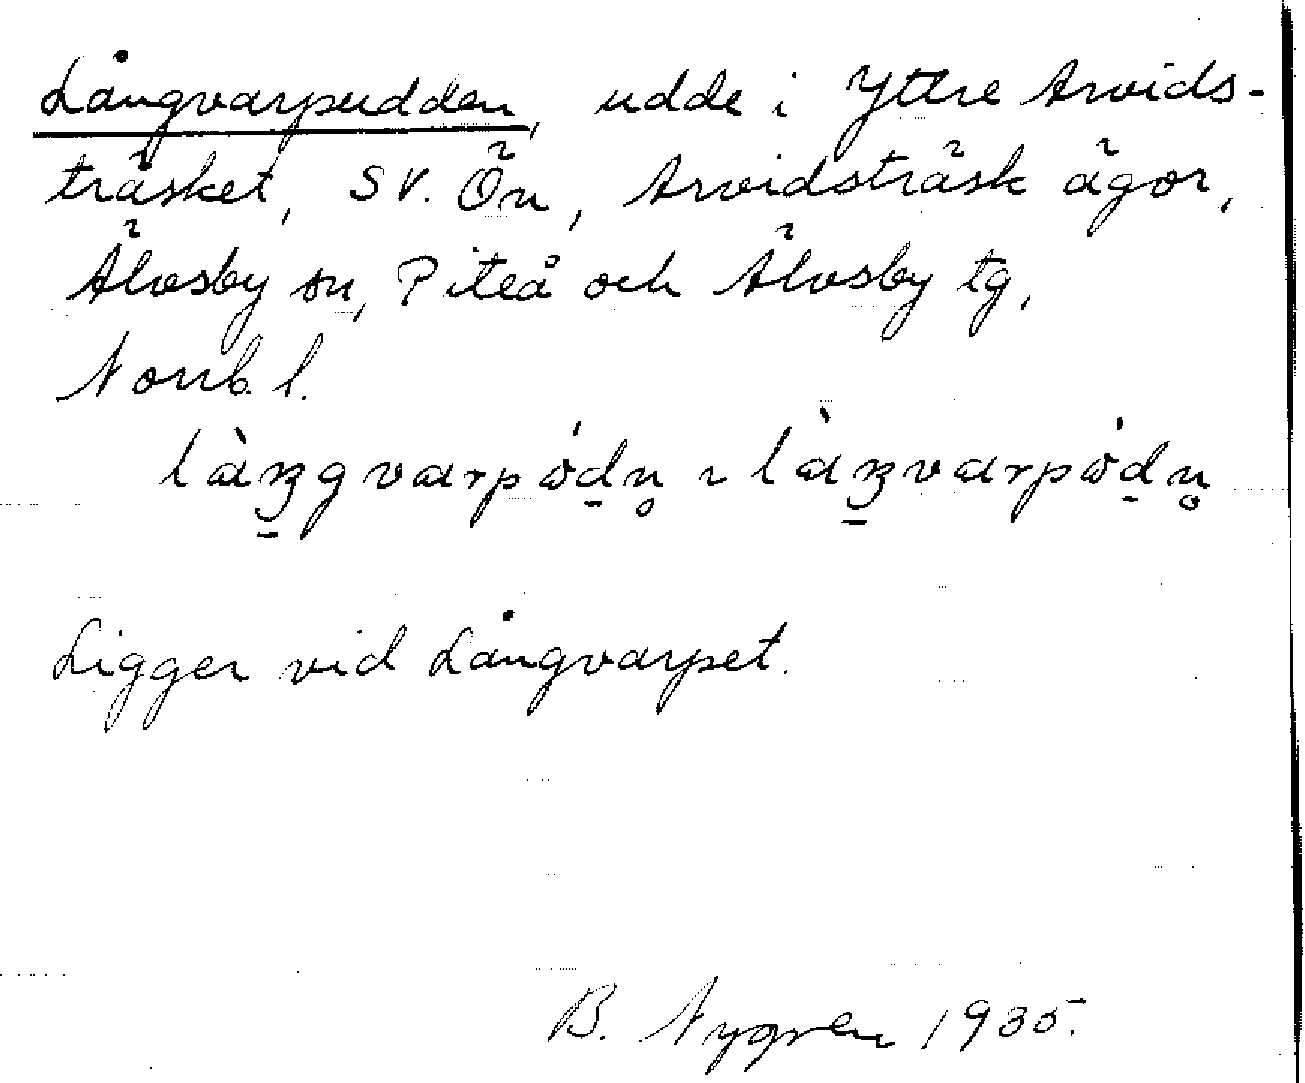 Långvarpudden, udde i Yttre Arvids-
träsket, SV. Ön, Arvidsträsk ägor,
Älvsby sn, Piteå och Älvsby tg,
Norrb. l.
làŋgvarpòdn̥ ~ làŋvarpòdn̥
Ligger vid Långvarpet.
B. Nygren 1935.